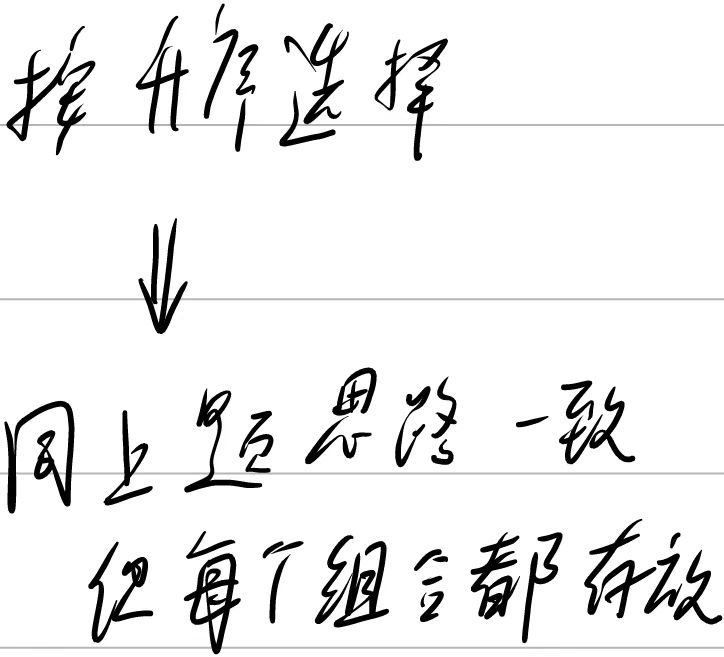 按升序选择
⇓
同上题思路一致
但每个组合都存放